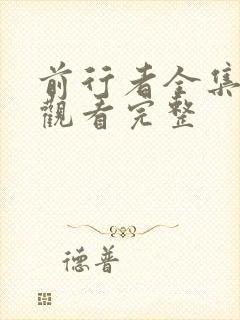 前行者全集
觀看完整
德普